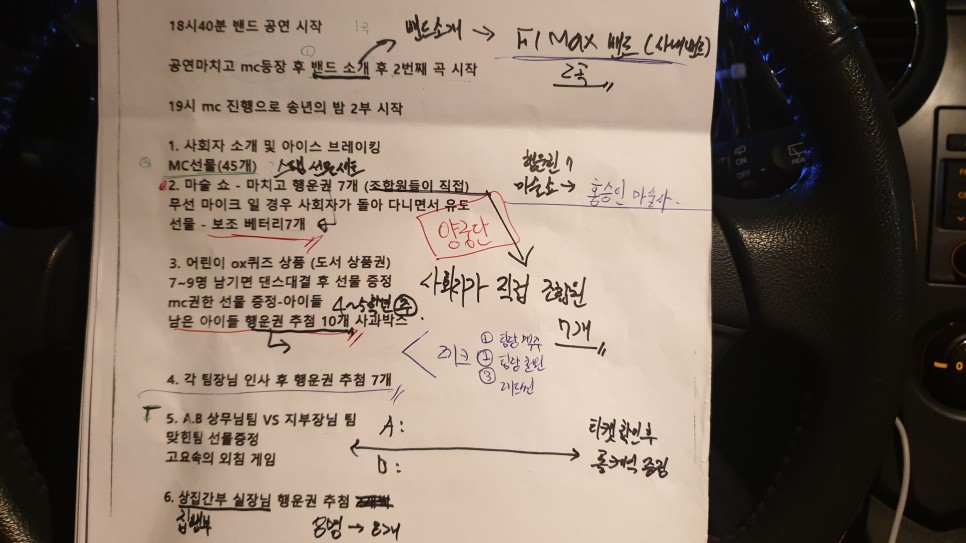 18시40분 밴드 공연 시작
밴드소개 → F1 Max 밴드 (사내밴드)
2곡
①
공연마치고 mc등장 후 밴드 소개 후 2번째 곡 시작
19시 mc 진행으로 송년의 밤 2부 시작
1. 사회자 소개 및 아이스 브레이킹
MC선물(45개)
2. 마술 쇼 - 마치고 행운권 7개 (조합원들이 직접)
무선 마이크 일 경우 사회자가 돌아 다니면서 유도
선물 - 보조 베터리7개
행운권 7
마술쇼 → 홍승인 마술사
양중단
사회자가 직접 조합원
7개
3. 어린이 ox퀴즈 상품 (도서 상품권)
7~9명 남기면 댄스대결 후 선물 증정
mc권한 선물 증정-아이들
4~5학년
남은 아이들 행운권 추첨 10개 사과박스
①
②
③
4. 각 팀장님 인사 후 행운권 추첨 7개
5. A.B 상무님팀 VS 지부장님 팀
맞힌팀 선물증정
고요속의 외침 게임
A:
B:
티켓 확인 후
롤케익 증정
6. 상집간부 실장님 행운권 추첨
집행부